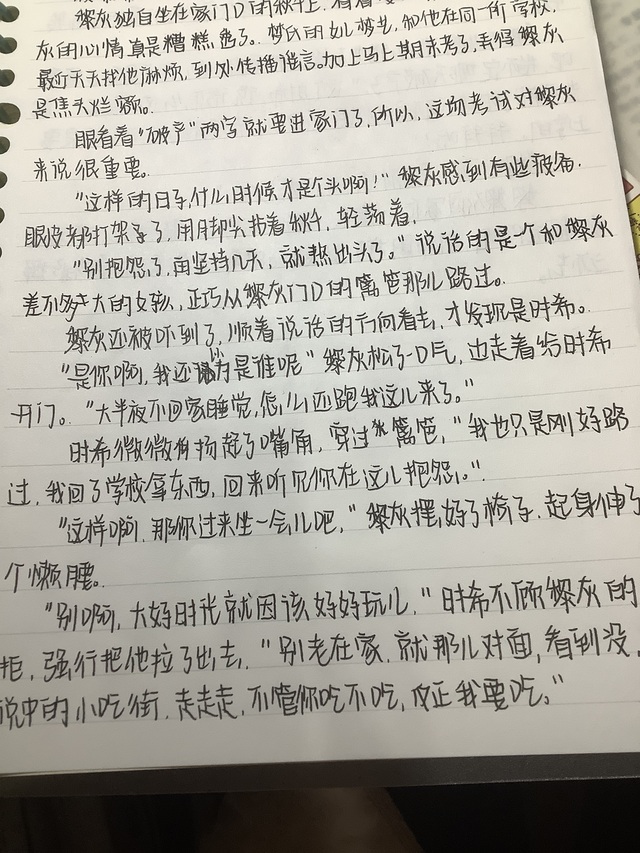 黎灰独自坐在家门口的秋千上,看着
灰的心情真是糟糕透了。梦氏的女儿梦艺,和他在同一所学校,
最近天天找他麻烦,到处传播谣言。加上马上期末考了,弄得黎灰
是焦头烂额。
眼看着“破产”两字就要进家门了,所以,这场考试对黎灰
来说很重要。
“这样的日子,什么时候才是个头啊!”黎灰感到有些疲备,
眼皮都打架了,用脚尖找着秋千,轻荡着,
“别抱怨了,再坚持几天,就熬出头了。”说话的是一个和黎灰
差不多大的女孩,正巧从黎灰门口的篱笆那儿路过。
黎灰还被吓到了,顺着说话的方向看去,才发现是时希。
“是你啊,我还以为是谁呢”黎灰松了一口气,边走着给时希
开门。“大半夜不回家睡觉,怎么还跑我这儿来了。”
时希微微扬起了嘴角,穿过篱笆,“我也只是刚好路
过,我回了学校拿东西,回来听见你在这儿抱怨。”
“这样啊,那你过来坐一会儿吧,”黎灰摆好了椅子,起身伸了
个懒腰。
“别啊,大好时光就因该好好玩儿,”时希不顾黎灰的
拒,强行把他拉了出去,“别老在家,就那儿对面,看到没,
说中的小吃街,走走走,不管你吃不吃,反正我要吃。”